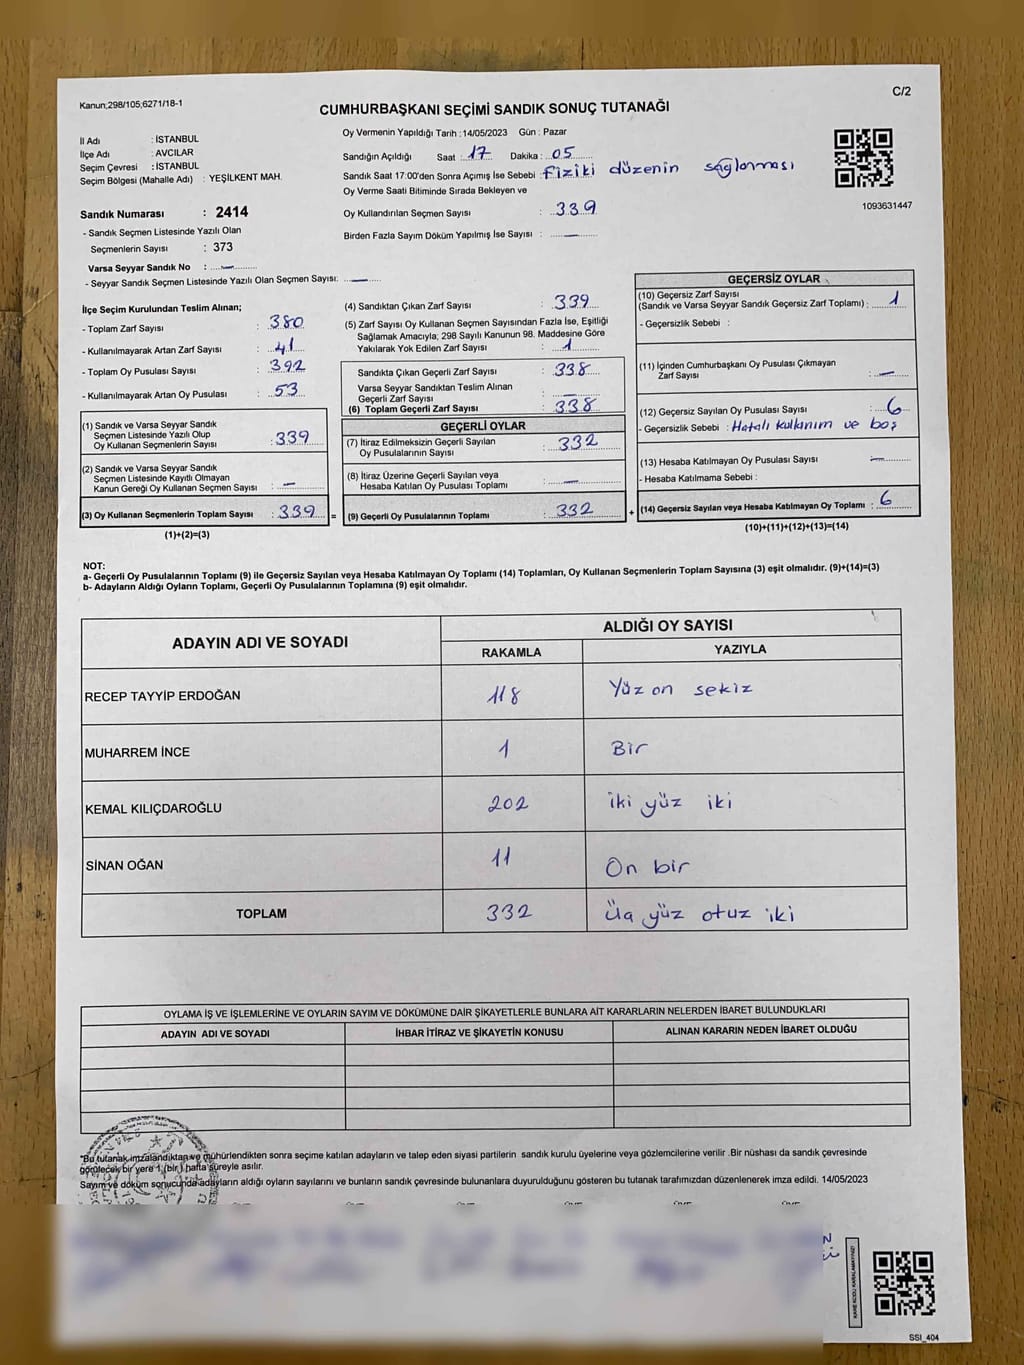 Kanun;298/105;6271/18-1
C/2
CUMHURBAŞKANI SEÇİMİ SANDIK SONUÇ TUTANAĞI
İl Adı : İSTANBUL
İlçe Adı : AVCILAR
Seçim Çevresi : İSTANBUL
Seçim Bölgesi (Mahalle Adı) : YEŞİLKENT MAH.
Sandık Numarası : 2414
- Sandık Seçmen Listesinde Yazılı Olan
Seçmenlerin Sayısı : 373
Varsa Seyyar Sandık No : —
- Seyyar Sandık Seçmen Listesinde Yazılı Olan Seçmen Sayısı: —
Oy Vermenin Yapıldığı Tarih : 14/05/2023 Gün : Pazar
Sandığın Açıldığı Saat : 17 Dakika : 05
Sandık Saat 17:00'den Sonra Açımış İse Sebebi : Fiziki düzenin sağlanması
Oy Verme Saati Bitiminde Sırada Bekleyen ve
Oy Kullandırılan Seçmen Sayısı : 339
Birden Fazla Sayım Döküm Yapılmış İse Sayısı : —
1093631447
İlçe Seçim Kurulundan Teslim Alınan;
- Toplam Zarf Sayısı : 380
- Kullanılmayarak Artan Zarf Sayısı : 41
- Toplam Oy Pusulası Sayısı : 392
- Kullanılmayarak Artan Oy Pusulası : 53
(1) Sandık ve Varsa Seyyar Sandık
Seçmen Listesinde Yazılı Olup
Oy Kullanan Seçmenlerin Sayısı : 339
(2) Sandık ve Varsa Seyyar Sandık
Seçmen Listesinde Kayıtlı Olmayan
Kanun Gereği Oy Kullanan Seçmen Sayısı : —
(3) Oy Kullanan Seçmenlerin Toplam Sayısı : 339 =
(1)+(2)=(3)
(4) Sandıktan Çıkan Zarf Sayısı : 339
(5) Zarf Sayısı Oy Kullanan Seçmen Sayısından Fazla İse, Eşitliği
Sağlamak Amacıyla; 298 Sayılı Kanunun 98. Maddesine Göre
Yakılarak Yok Edilen Zarf Sayısı : 1
Sandıkta Çıkan Geçerli Zarf Sayısı : 338
Varsa Seyyar Sandıktan Teslim Alınan
Geçerli Zarf Sayısı : —
(6) Toplam Geçerli Zarf Sayısı : 338
GEÇERLİ OYLAR
(7) İtiraz Edilmeksizin Geçerli Sayılan
Oy Pusulalarının Sayısı : 332
(8) İtiraz Üzerine Geçerli Sayılan veya
Hesaba Katılan Oy Pusulası Toplamı : —
(9) Geçerli Oy Pusulalarının Toplamı : 332 +
GEÇERSİZ OYLAR
(10) Geçersiz Zarf Sayısı
(Sandık ve Varsa Seyyar Sandık Geçersiz Zarf Toplamı) : 1
- Geçersizlik Sebebi :
(11) İçinden Cumhurbaşkanı Oy Pusulası Çıkmayan
Zarf Sayısı : —
(12) Geçersiz Sayılan Oy Pusulası Sayısı : 6
- Geçersizlik Sebebi : Hatalı kullanım ve boş
(13) Hesaba Katılmayan Oy Pusulası Sayısı : —
- Hesaba Katılmama Sebebi :
(14) Geçersiz Sayılan veya Hesaba Katılmayan Oy Toplamı : 6
(10)+(11)+(12)+(13)=(14)
NOT:
a- Geçerli Oy Pusulalarının Toplamı (9) ile Geçersiz Sayılan veya Hesaba Katılmayan Oy Toplamı (14) Toplamları, Oy Kullanan Seçmenlerin Toplam Sayısına (3) eşit olmalıdır. (9)+(14)=(3)
b- Adayların Aldığı Oyların Toplamı, Geçerli Oy Pusulalarının Toplamına (9) eşit olmalıdır.
ADAYIN ADI VE SOYADI ALDIĞI OY SAYISI
RAKAMLA YAZIYLA
RECEP TAYYİP ERDOĞAN 118 Yüz on sekiz
MUHARREM İNCE 1 Bir
KEMAL KILIÇDAROĞLU 202 iki yüz iki
SİNAN OĞAN 11 On bir
TOPLAM 332 Üç yüz otuz iki
OYLAMA İŞ VE İŞLEMLERİNE VE OYLARIN SAYIM VE DÖKÜMÜNE DAİR ŞİKAYETLERLE BUNLARA AİT KARARLARIN NELERDEN İBARET BULUNDUKLARI
ADAYIN ADI VE SOYADI İHBAR İTİRAZ VE ŞİKAYETİN KONUSU ALINAN KARARIN NEDEN İBARET OLDUĞU
"Bu tutanak imzalandıktan ve mühürlendikten sonra seçime katılan adayların ve talep eden siyasi partilerin sandık kurulu üyelerine veya gözlemcilerine verilir .Bir nüshası da sandık çevresinde
görülecek bir yere 1 (bir) hafta süreyle asılır.
Sayım ve döküm sonucunda adayların aldığı oyların sayılarını ve bunların sandık çevresinde bulunanlara duyurulduğunu gösteren bu tutanak tarafımızdan düzenlenerek imza edildi. 14/05/2023
KARE KODU KARALAMAYINIZ!
SSI_404